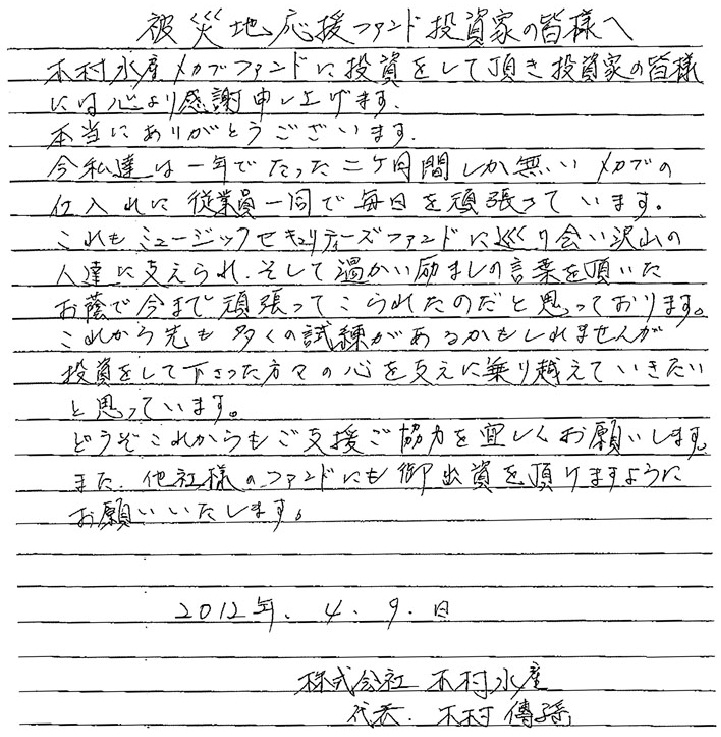 被災地応援ファンド投資家の皆様へ
木村水産メカブファンドに投資をして頂き投資家の皆様
には心より感謝申し上げます.
本当にありがとうございます.
今私達は一年でたった二ケ月間しか無いメカブの
仕入れに従業員一同で毎日を頑張っています。
これもミュージックセキュリティーズファンドに巡り会い沢山の
人達に支えられ.そして温かい励ましの言葉を頂いた
お蔭で今まで頑張ってこられたのだと思っております。
これから先も多くの試練があるかもしれませんが
投資をして下さった方々の心を支えに乗り越えていきたい
と思っています。
どうぞこれからもご支援ご協力を宜しくお願いします。
また.他社様のファンドにも御出資を頂けますように
お願いいたします。
2012年.4.9.日
株式会社 木村水産
代表.木村 傳孫